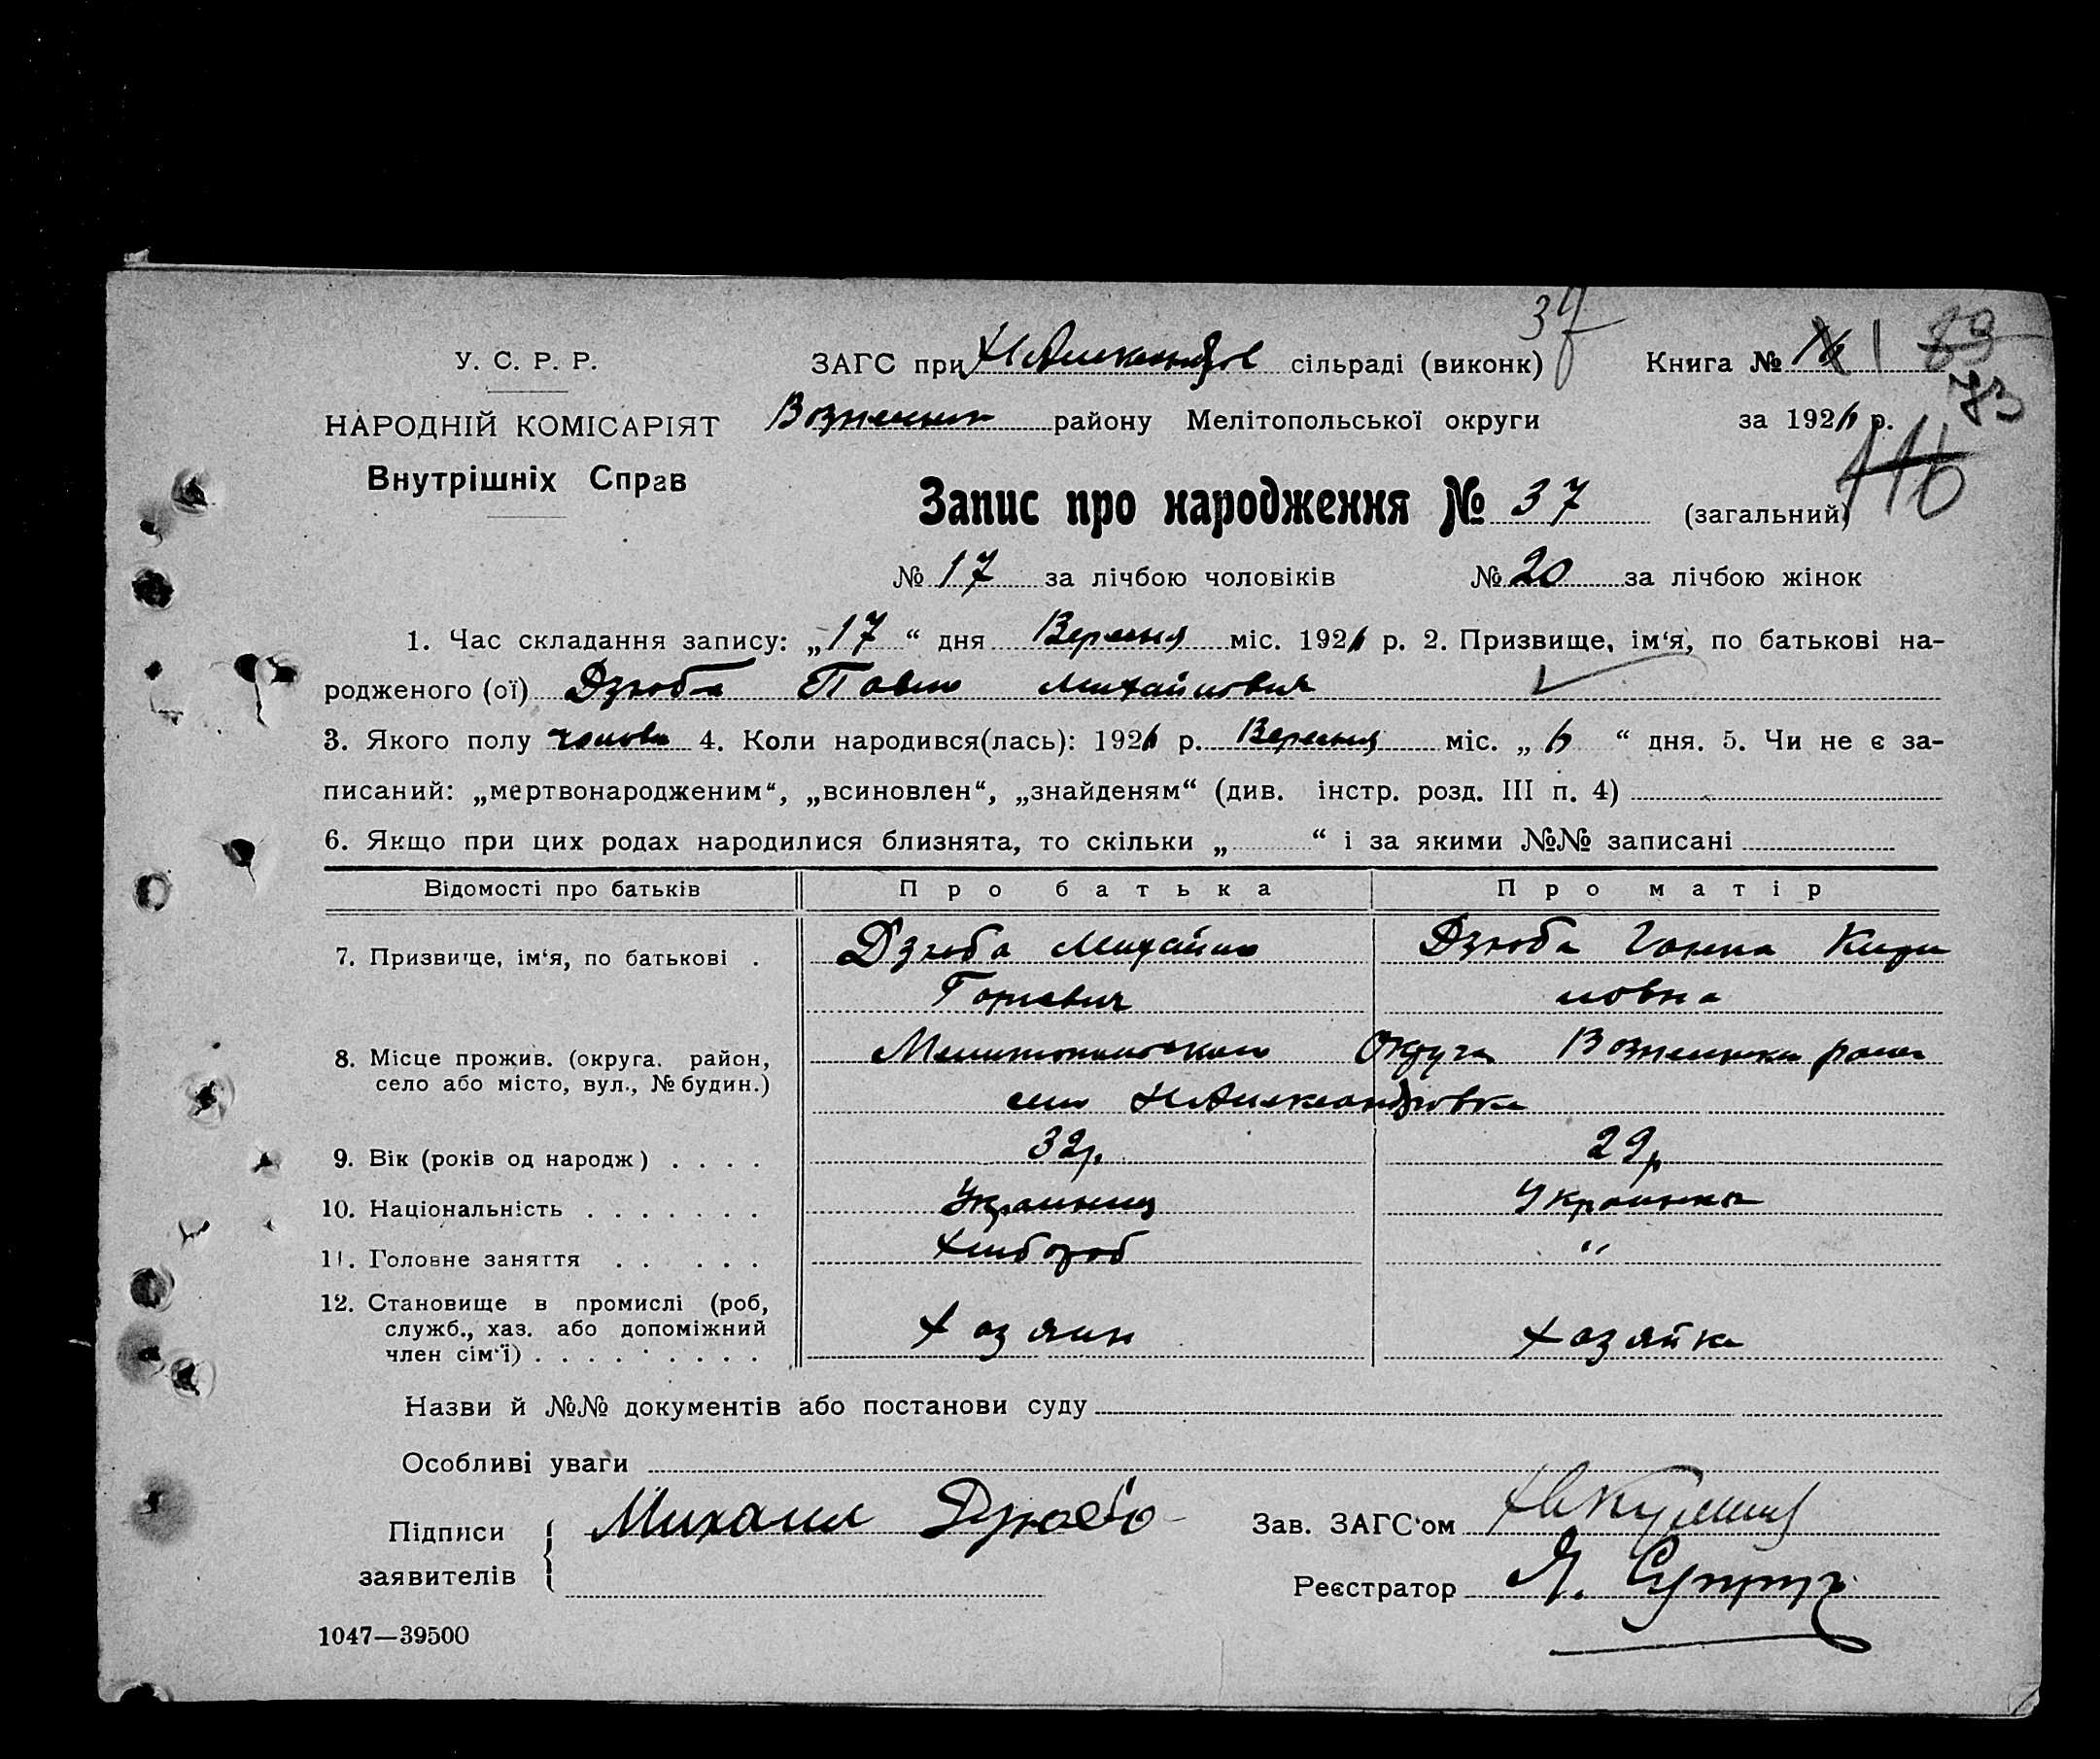 37
У. С. Р. Р. ЗАГС при Н Александров сільраді (виконк) Книга № 1 89
73
НАРОДНІЙ КОМІСАРІЯТ Вознесенк району Мелітопольської округи за 1926 р.
116
Внутрішніх Справ
Запис про народження № 37 (загальний)
№ 17 за лічбою чоловіків № 20 за лічбою жінок
1. Час складання запису: „17“ дня Вересня міс. 1926 р. 2. Призвище, ім‘я, по батькові на-
родженого (ої) Дзюба Павло Михайлович
3. Якого полу чолов 4. Коли народився(лась): 1926 р. Вересня міс. „6“ дня. 5. Чи не є за-
писаний: „мертвонародженим“, „всиновлен“, „знайденям“ (див. інстр. розд. III п. 4)
6. Якщо при цих родах народилися близнята, то скільки „ “ і за якими №№ записані
Відомості про батьків Про батька Про матір
7. Призвище, ім‘я, по батькові . Дзюба Михайло Дзюба Ганна Кири
ловна
8. Місце прожив. (округа. район, Мелитопольскои Округи Вознесенски район
село або місто, вул., № будин.) село Н Александровка
9. Вік (років од народж) . . . . 32р. 29р
10. Національність . . . . . . . Украинец Украинка
11. Головне заняття . . . . . Хлибороб "
12. Становище в промислі (роб,
служб., хаз. або допоміжний Хозяин Хозяйка
член сім‘ї) . . . . . . . . .
Назви й №№ документів або постанови суду
Особливі уваги
Підписи Михаил Дзюба Зав. ЗАГС‘ом
заявителів Реєстратор Я.
1047—39500